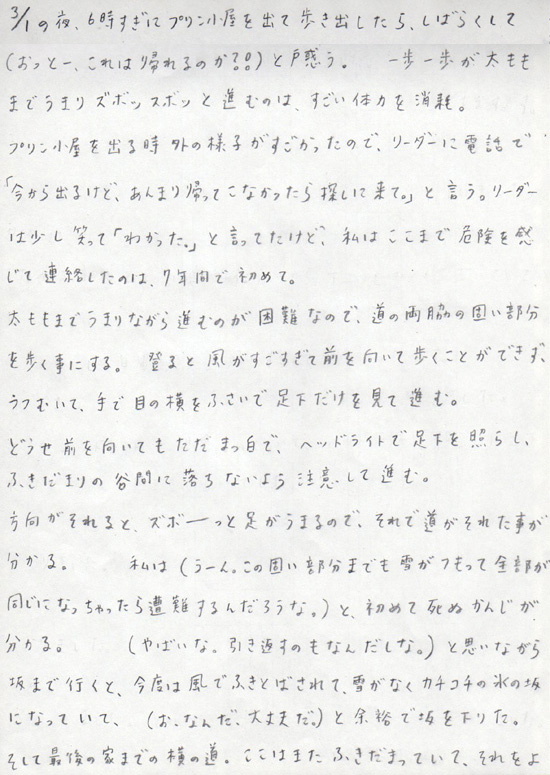 3/1の夜、6時すぎにプリン小屋を出て歩き出したら、しばらくして
(おっとー、これは帰れるのか?!?!)と戸惑う。 一歩一歩が太もも
までうまりズボッスボッと進むのは、すごい体力を消耗。
プリン小屋を出る時外の様子がすごかったので、リーダーに電話で
「今から出るけど、あんまり帰ってこなかったら探しに来て。」と言う。リーダー
は少し笑って「わかった。」と言ってたけど、私はここまで危険を感
じて連絡したのは、7年間で初めて。
太ももまでうまりながら進むのが困難なので、道の両脇の固い部分
を歩く事にする。 登ると風がすごすぎて前を向いて歩くことができず、
うつむいて、手で目の横をふさいで足下だけを見て進む。
どうせ前を向いてもただまっ白で、ヘッドライトで足下を照らし、
ふきだまりの谷間に落ちないよう注意して進む。
方向がそれると、ズボーーっと足がうまるので、それで道がそれた事が
分かる。 私は(うーん。この固い部分までも雪がつもって全部が
同じになっちゃったら遭難するんだろうな。)と、初めて死ぬかんじが
分かる。 (やばいな。引き返すのもなんだしな。)と思いながら
坂まで行くと、今度は風でふきとばされて、雪がなくカチコチの氷の坂
になっていて、 (お、なんだ、大丈夫だ。)と余裕で坂を下りた。
そして最後の家までの横の道。ここはまたふきだまっていて、それをよ